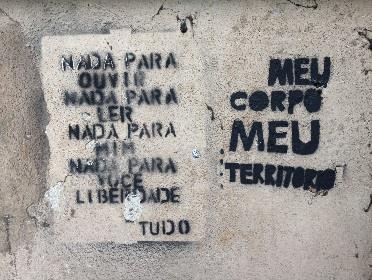 NADA PARA
OUVIR
NADA PARA
LER
NADA PARA
MIM
NADA PARA
VOCÊ
LIBERDADE
TUDO
MEU
CORPO
MEU
TERRITORIO